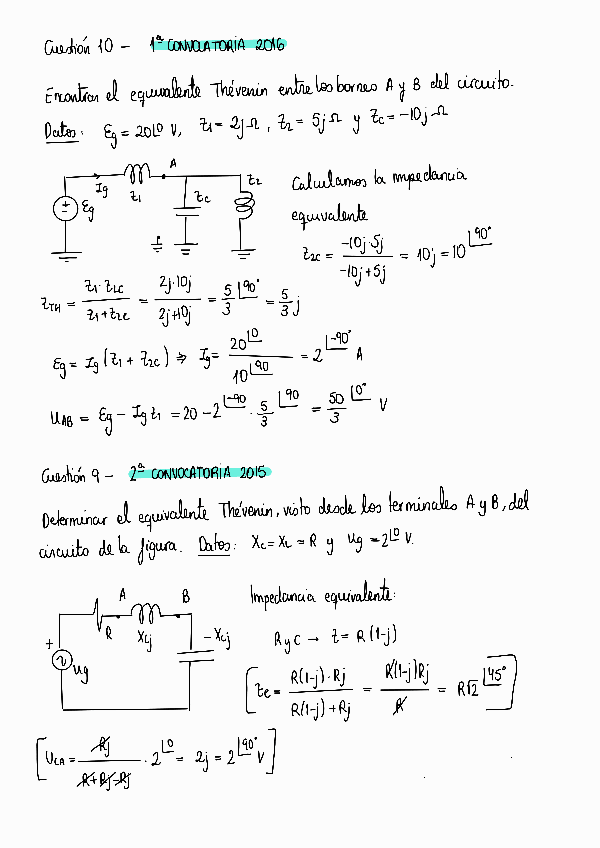 Cuestión 10 - 1ª CONVOCATORIA 2016
Encontrar el equivalente Thévenin entre los bornes A y B del circuito.
Datos: Eg = 20∠0 V, Z1 = 2j Ω, Z2 = 5j Ω y Zc = -10j Ω
A
Ig Z1 Zc Z2
Eg
Calculamos la impedancia
equivalente
Z2C = (-10j·5j)/(-10j+5j) = 10j = 10∠90°
ZTH = (Z1·Z2C)/(Z1+Z2C) = (2j·10j)/(2j+10j) = 5/3∠90° = 5/3 j
Eg = Ig (Z1 + Z2C) ⇒ Ig = 20∠0/10∠90 = 2∠-90° A
UAB = Eg - Ig Z1 = 20 - 2∠-90 · 5/3∠90 = 50/3∠0° V
Cuestión 9 - 2ª CONVOCATORIA 2015
Determinar el equivalente Thévenin, visto desde los terminales A y B, del
circuito de la figura. Datos: Xc = XL = R y Ug = 2∠0 V.
A B
R XLj -Xcj
+
Ug
Impedancia equivalente:
R y C → Z = R(1-j)
[Ze = (R(1-j)·Rj)/(R(1-j)+Rj) = (R(1-j)Rj)/R = R√2∠45°]
[UCA = Rj/(R+Rj-Rj) · 2∠0 = 2j = 2∠90° V]